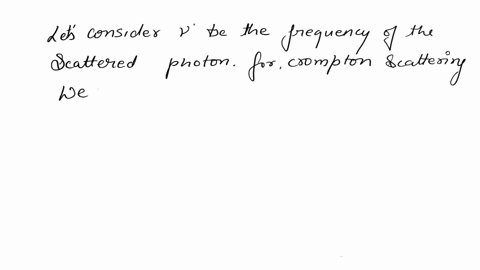 Let's consider ν' be the frequency of the
Scattered photon. for. crompton Scattering
We